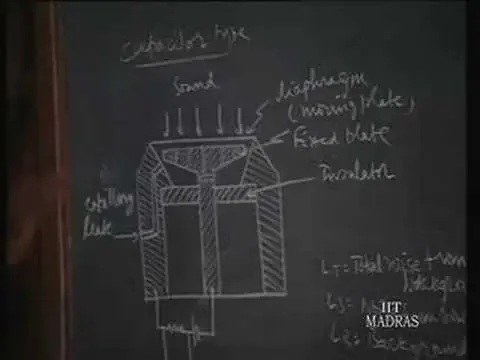 Capacitor type
Sound
diaphragm
(moving plate)
Fixed plate
Insulator
Capillary
L T = Total noise +
L B = Background
IIT
MADRAS